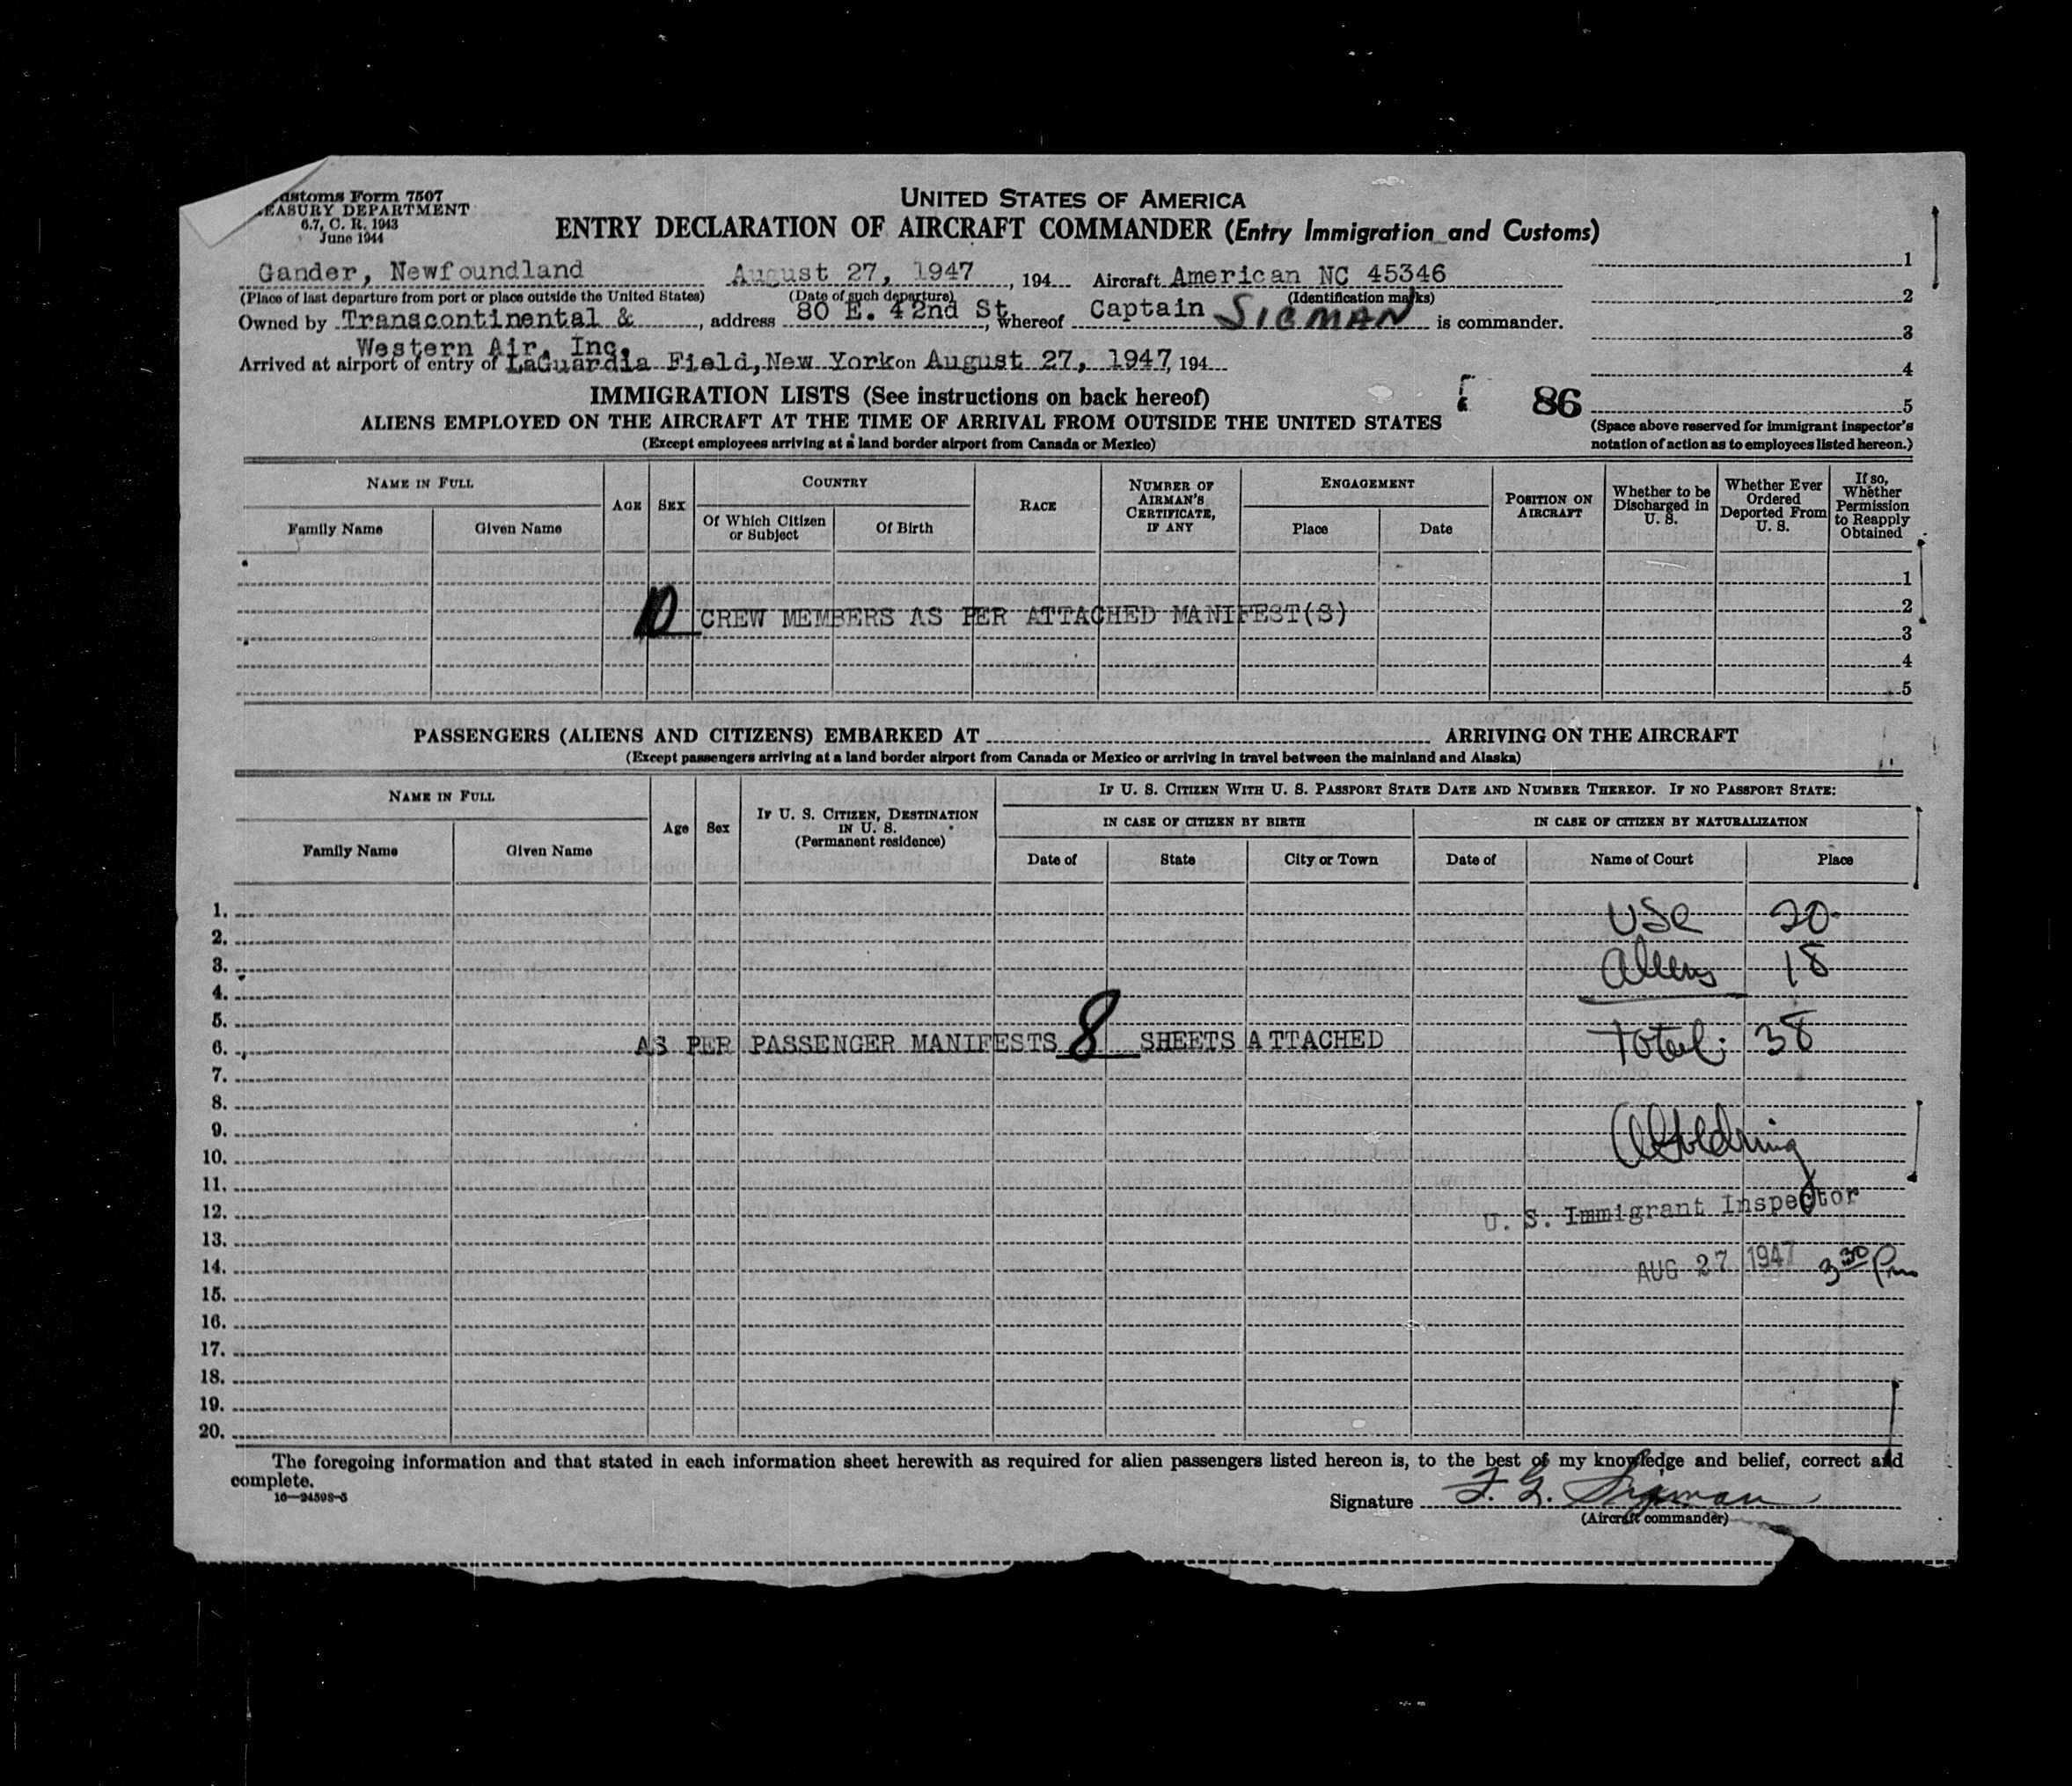 ustoms Form 7507
EASURY DEPARTMENT
6.7, C. R. 1943
June 1944
UNITED STATES OF AMERICA
ENTRY DECLARATION OF AIRCRAFT COMMANDER (Entry Immigration and Customs)
Gander, Newfoundland August 27, 1947, 194 Aircraft American NC 45346
(Place of last departure from port or place outside the United States) (Date of such departure) (Identification marks)
Owned by Transcontinental & , address 80 E. 42nd St, whereof Captain SIGMAN is commander.
Western Air, Inc.
Arrived at airport of entry of LaGuardia Field, New York on August 27, 1947, 194
1
2
3
4
5
IMMIGRATION LISTS (See instructions on back hereof)
86
ALIENS EMPLOYED ON THE AIRCRAFT AT THE TIME OF ARRIVAL FROM OUTSIDE THE UNITED STATES
(Except employees arriving at a land border airport from Canada or Mexico)
(Space above reserved for immigrant inspector's
notation of action as to employees listed hereon.)
NAME IN FULL
Family Name Given Name
AGE SEX
COUNTRY
Of Which Citizen or Subject Of Birth
RACE
NUMBER OF AIRMAN'S CERTIFICATE, IF ANY
ENGAGEMENT
Place Date
POSITION ON AIRCRAFT
Whether to be Discharged in U. S.
Whether Ever Ordered Deported From U. S.
If so, Whether Permission to Reapply Obtained
1
2
10 CREW MEMBERS AS PER ATTACHED MANIFEST(S)
3
4
5
PASSENGERS (ALIENS AND CITIZENS) EMBARKED AT ARRIVING ON THE AIRCRAFT
(Except passengers arriving at a land border airport from Canada or Mexico or arriving in travel between the mainland and Alaska)
NAME IN FULL
Family Name Given Name
Age Sex
IF U. S. CITIZEN, DESTINATION IN U. S. (Permanent residence)
IF U. S. CITIZEN WITH U. S. PASSPORT STATE DATE AND NUMBER THEREOF. IF NO PASSPORT STATE:
IN CASE OF CITIZEN BY BIRTH IN CASE OF CITIZEN BY NATURALIZATION
Date of State City or Town Date of Name of Court Place
1. USC 20
2.
3. Aliens 18
4.
5.
6. AS PER PASSENGER MANIFESTS 8 SHEETS ATTACHED Total: 38
7.
8.
9.
10.
11.
12. U. S. Immigrant Inspector
13.
14. AUG 27 1947 3 30 Pm
15.
16.
17.
18.
19.
20.
The foregoing information and that stated in each information sheet herewith as required for alien passengers listed hereon is, to the best of my knowledge and belief, correct and
complete.
16—24598-5
Signature F. G. Sigman
(Aircraft commander)